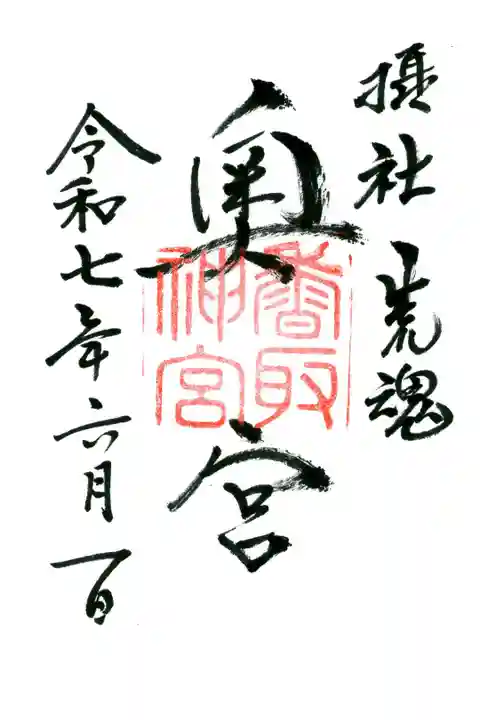 摂社 荒魂
奥宮
香取
神宮
令和七年六月一日